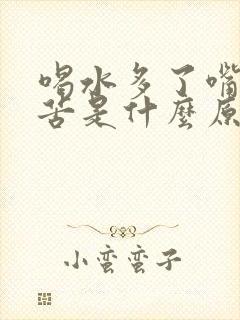 喝水多了嘴
苦是什麼原
小蛮蛮子